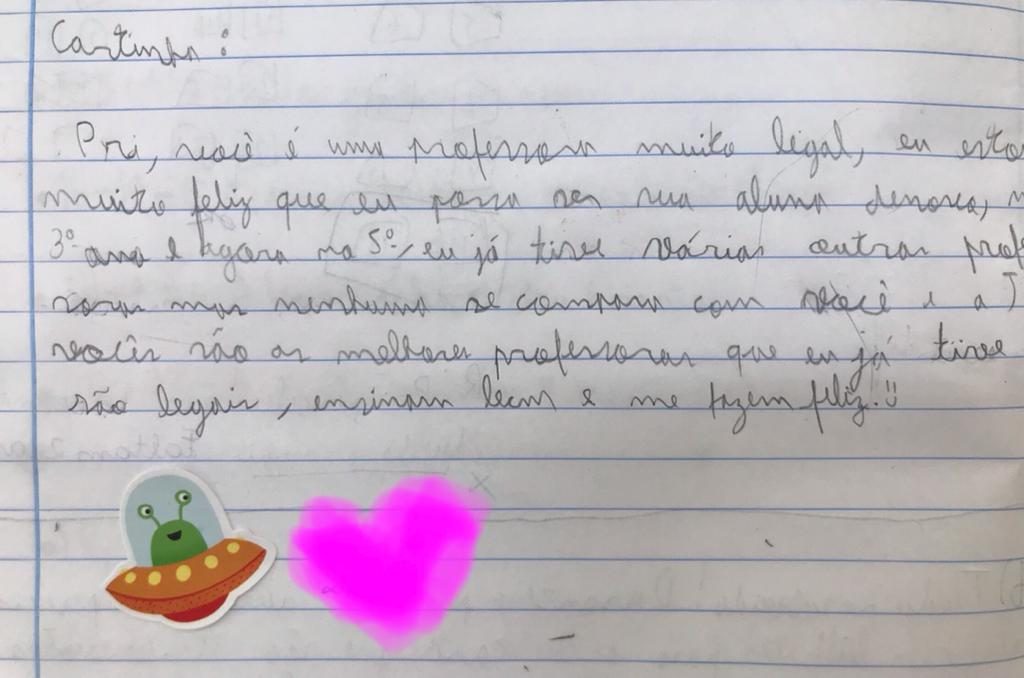 Cartinha:
Pri, você é uma professora muito legal, eu esto
muito feliz que eu possa ser sua aluna denovo, n
3º ano e agora no 5º, eu já tive várias outras prof
soras mas nenhuma se compara com você e a J
vocês são as melhores professoras que eu já tive
são legais, ensinam bem e me fazem feliz!